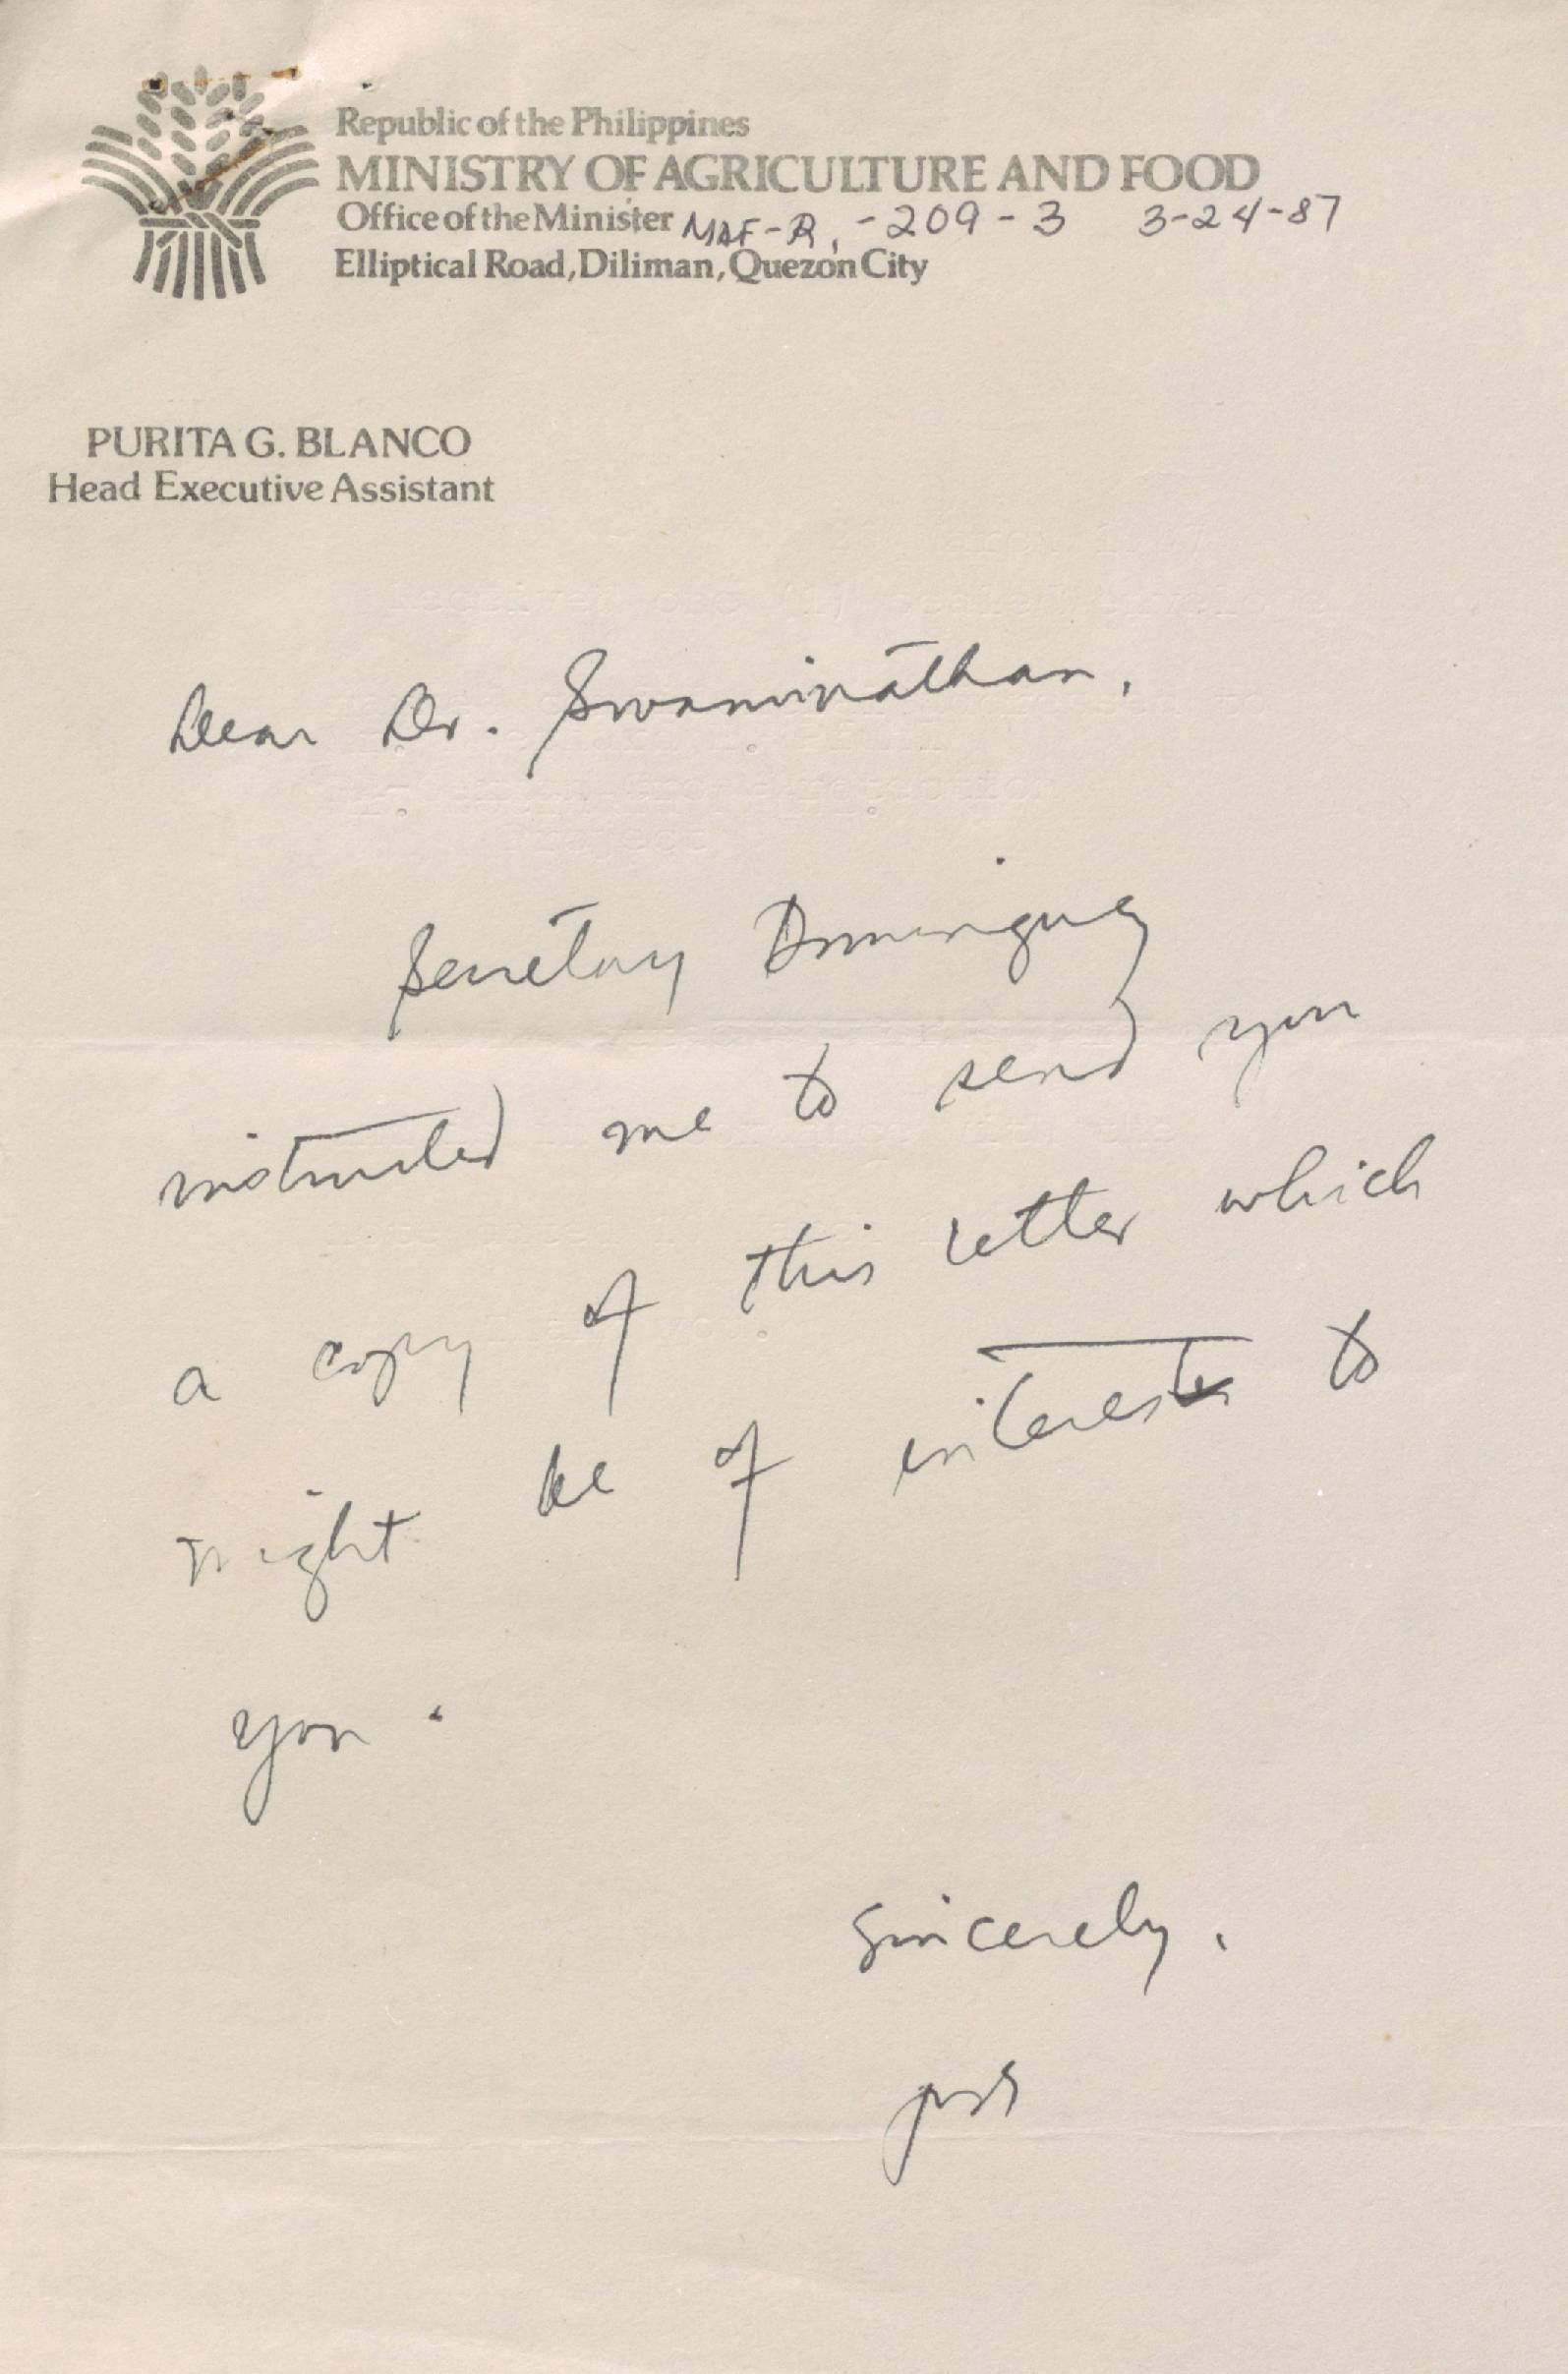 Republic of the Philippines
MINISTRY OF AGRICULTURE AND FOOD
Office of the Minister MAF-R, -209-3 3-24-87
Elliptical Road, Diliman, Quezon City
PURITA G. BLANCO
Head Executive Assistant
Dear Dr. Swaminathan,
Secretary Dominguez
instructed me to send you
a copy of this letter which
might be of interest to
you.
Sincerely,